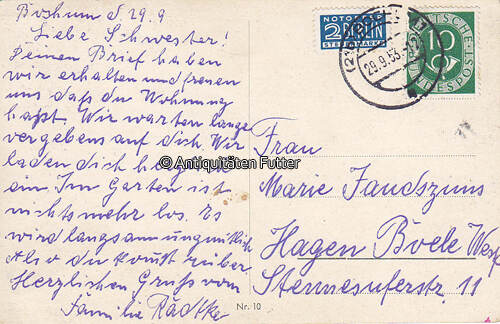 Bochum d 29.9
Liebe Schwester!
Deinen Brief haben
wir erhalten und freuen
uns daß du Wohnung
haßt. Wir warten lange
vergebens auf dich. Wir
laden dich herzlich
ein. Im Garten ist
nichts mehr los. Es
wird langsam ungemütlich
Also du kommst rüber
Herzlichen Gruß vom
Familie Radtke
NOTOPFER
2 BERLIN
STEUERMARKE
29.9.53
10
DEUTSCHE
BUNDESPOST
© Antiquitäten Futter
Frau
Marie Jandszuns
Hagen Boele Westf
Stennesuferstr. 11
Nr. 10